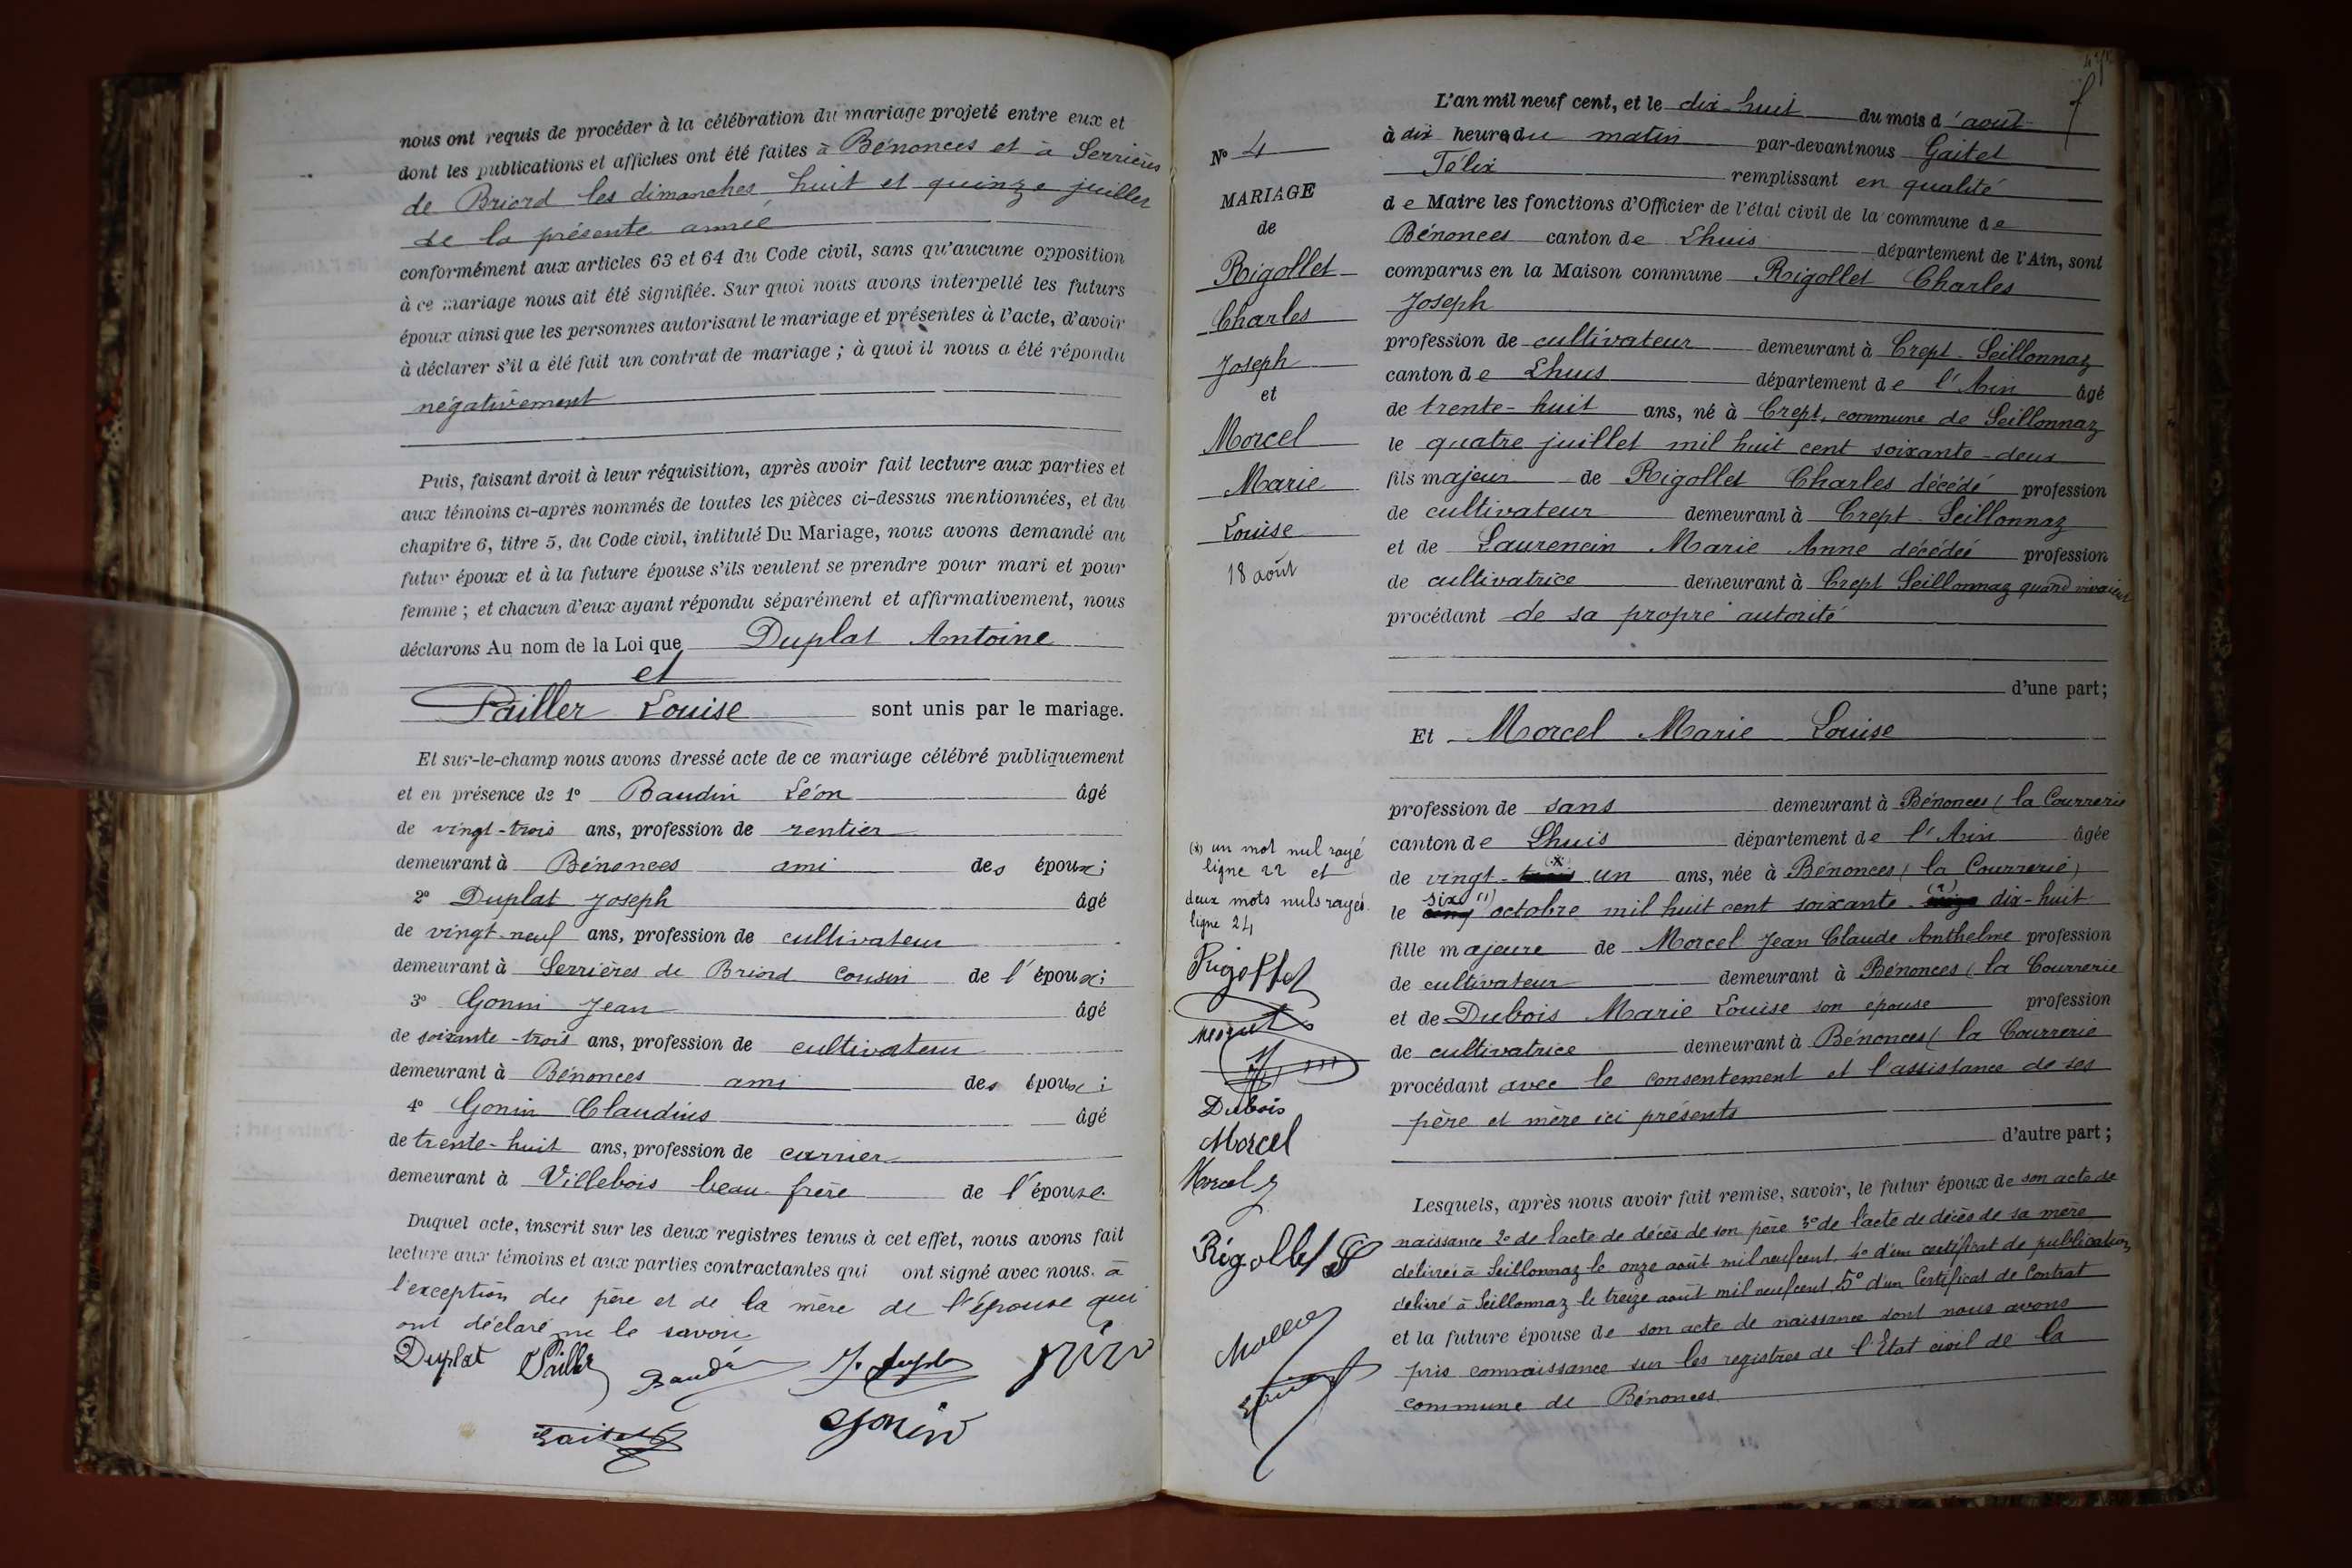 nous ont requis de procéder à la célébration du mariage projeté entre eux et
dont les publications et affiches ont été faites à Bénonces et à Serrières
de Briord les dimanches huit et quinze juillet
de la présente année
conformément aux articles 63 et 64 du Code civil, sans qu'aucune opposition
à ce mariage nous ait été signifiée. Sur quoi nous avons interpellé les futurs
époux ainsi que les personnes autorisant le mariage et présentes à l'acte, d'avoir
à déclarer s'il a été fait un contrat de mariage ; à quoi il nous a été répondu
négativement
Puis, faisant droit à leur réquisition, après avoir fait lecture aux parties et
aux témoins ci-après nommés de toutes les pièces ci-dessus mentionnées, et du
chapitre 6, titre 5, du Code civil, intitulé Du Mariage, nous avons demandé au
futur époux et à la future épouse s'ils veulent se prendre pour mari et pour
femme ; et chacun d'eux ayant répondu séparément et affirmativement, nous
déclarons Au nom de la Loi que Duplat Antoine
et
Pailler Louise sont unis par le mariage.
Et sur-le-champ nous avons dressé acte de ce mariage célébré publiquement
et en présence de 1° Baudin Léon âgé
de vingt-trois ans, profession de rentier
demeurant à Bénonces ami des époux ;
2° Duplat Joseph âgé
de vingt-neuf ans, profession de cultivateur
demeurant à Serrières de Briord cousin de l'époux ;
3° Gonin Jean âgé
de soixante-trois ans, profession de cultivateur
demeurant à Bénonces ami des époux ;
4° Gonin Claudius âgé
de trente-huit ans, profession de carrier
demeurant à Villebois beau-frère de l'épouse.
Duquel acte, inscrit sur les deux registres tenus à cet effet, nous avons fait
lecture aux témoins et aux parties contractantes qui ont signé avec nous. à
l'exception du père et de la mère de l'épouse qui
ont déclaré ne le savoir
Duplat Pailler Baudin J. Duplat
Gaitet Gonin
N° 4
MARIAGE
de
Rigollet
Charles
Joseph
et
Morcel
Marie
Louise
18 août
(x) un mot nul rayé
ligne 22 et
deux mots nuls rayés
ligne 24
Rigollet
Dubois
Morcel
Morcel
Rigollet
L'an mil neuf cent, et le dix-huit du mois d'août
à dix heures du matin par-devant nous Gaitet
Félix remplissant en qualité
de Maire les fonctions d'Officier de l'état civil de la commune de
Bénonces canton de Lhuis département de l'Ain, sont
comparus en la Maison commune Rigollet Charles
Joseph
profession de cultivateur demeurant à Crept-Seillonnaz
canton de Lhuis département de l'Ain âgé
de trente-huit ans, né à Crept, commune de Seillonnaz
le quatre juillet mil huit cent soixante-deux
fils majeur de Rigollet Charles décédé profession
de cultivateur demeurant à Crept-Seillonnaz
et de Laurencin Marie Anne décédée profession
de cultivatrice demeurant à Crept Seillonnaz quand vivaient
procédant de sa propre autorité
d'une part ;
Et Morcel Marie Louise
profession de sans demeurant à Bénonces (la Courrerie
canton de Lhuis département de l'Ain âgée
de vingt-trois (x) un ans, née à Bénonces (la Courrerie)
le cinq six (1) octobre mil huit cent soixante- (2) dix-huit
fille majeure de Morcel Jean Claude Anthelme profession
de cultivateur demeurant à Bénonces (la Courrerie
et de Dubois Marie Louise son épouse profession
de cultivatrice demeurant à Bénonces (la Courrerie
procédant avec le consentement et l'assistance de ses
père et mère ici présents
d'autre part ;
Lesquels, après nous avoir fait remise, savoir, le futur époux de son acte de
naissance 2° de l'acte de décès de son père 3° de l'acte de décès de sa mère
délivrés à Seillonnaz le onze août mil neuf cent, 4° d'un certificat de publication
délivré à Seillonnaz le treize août mil neuf cent, 5° d'un Certificat de Contrat
et la future épouse de son acte de naissance dont nous avons
pris connaissance sur les registres de l'Etat civil de la
commune de Bénonces